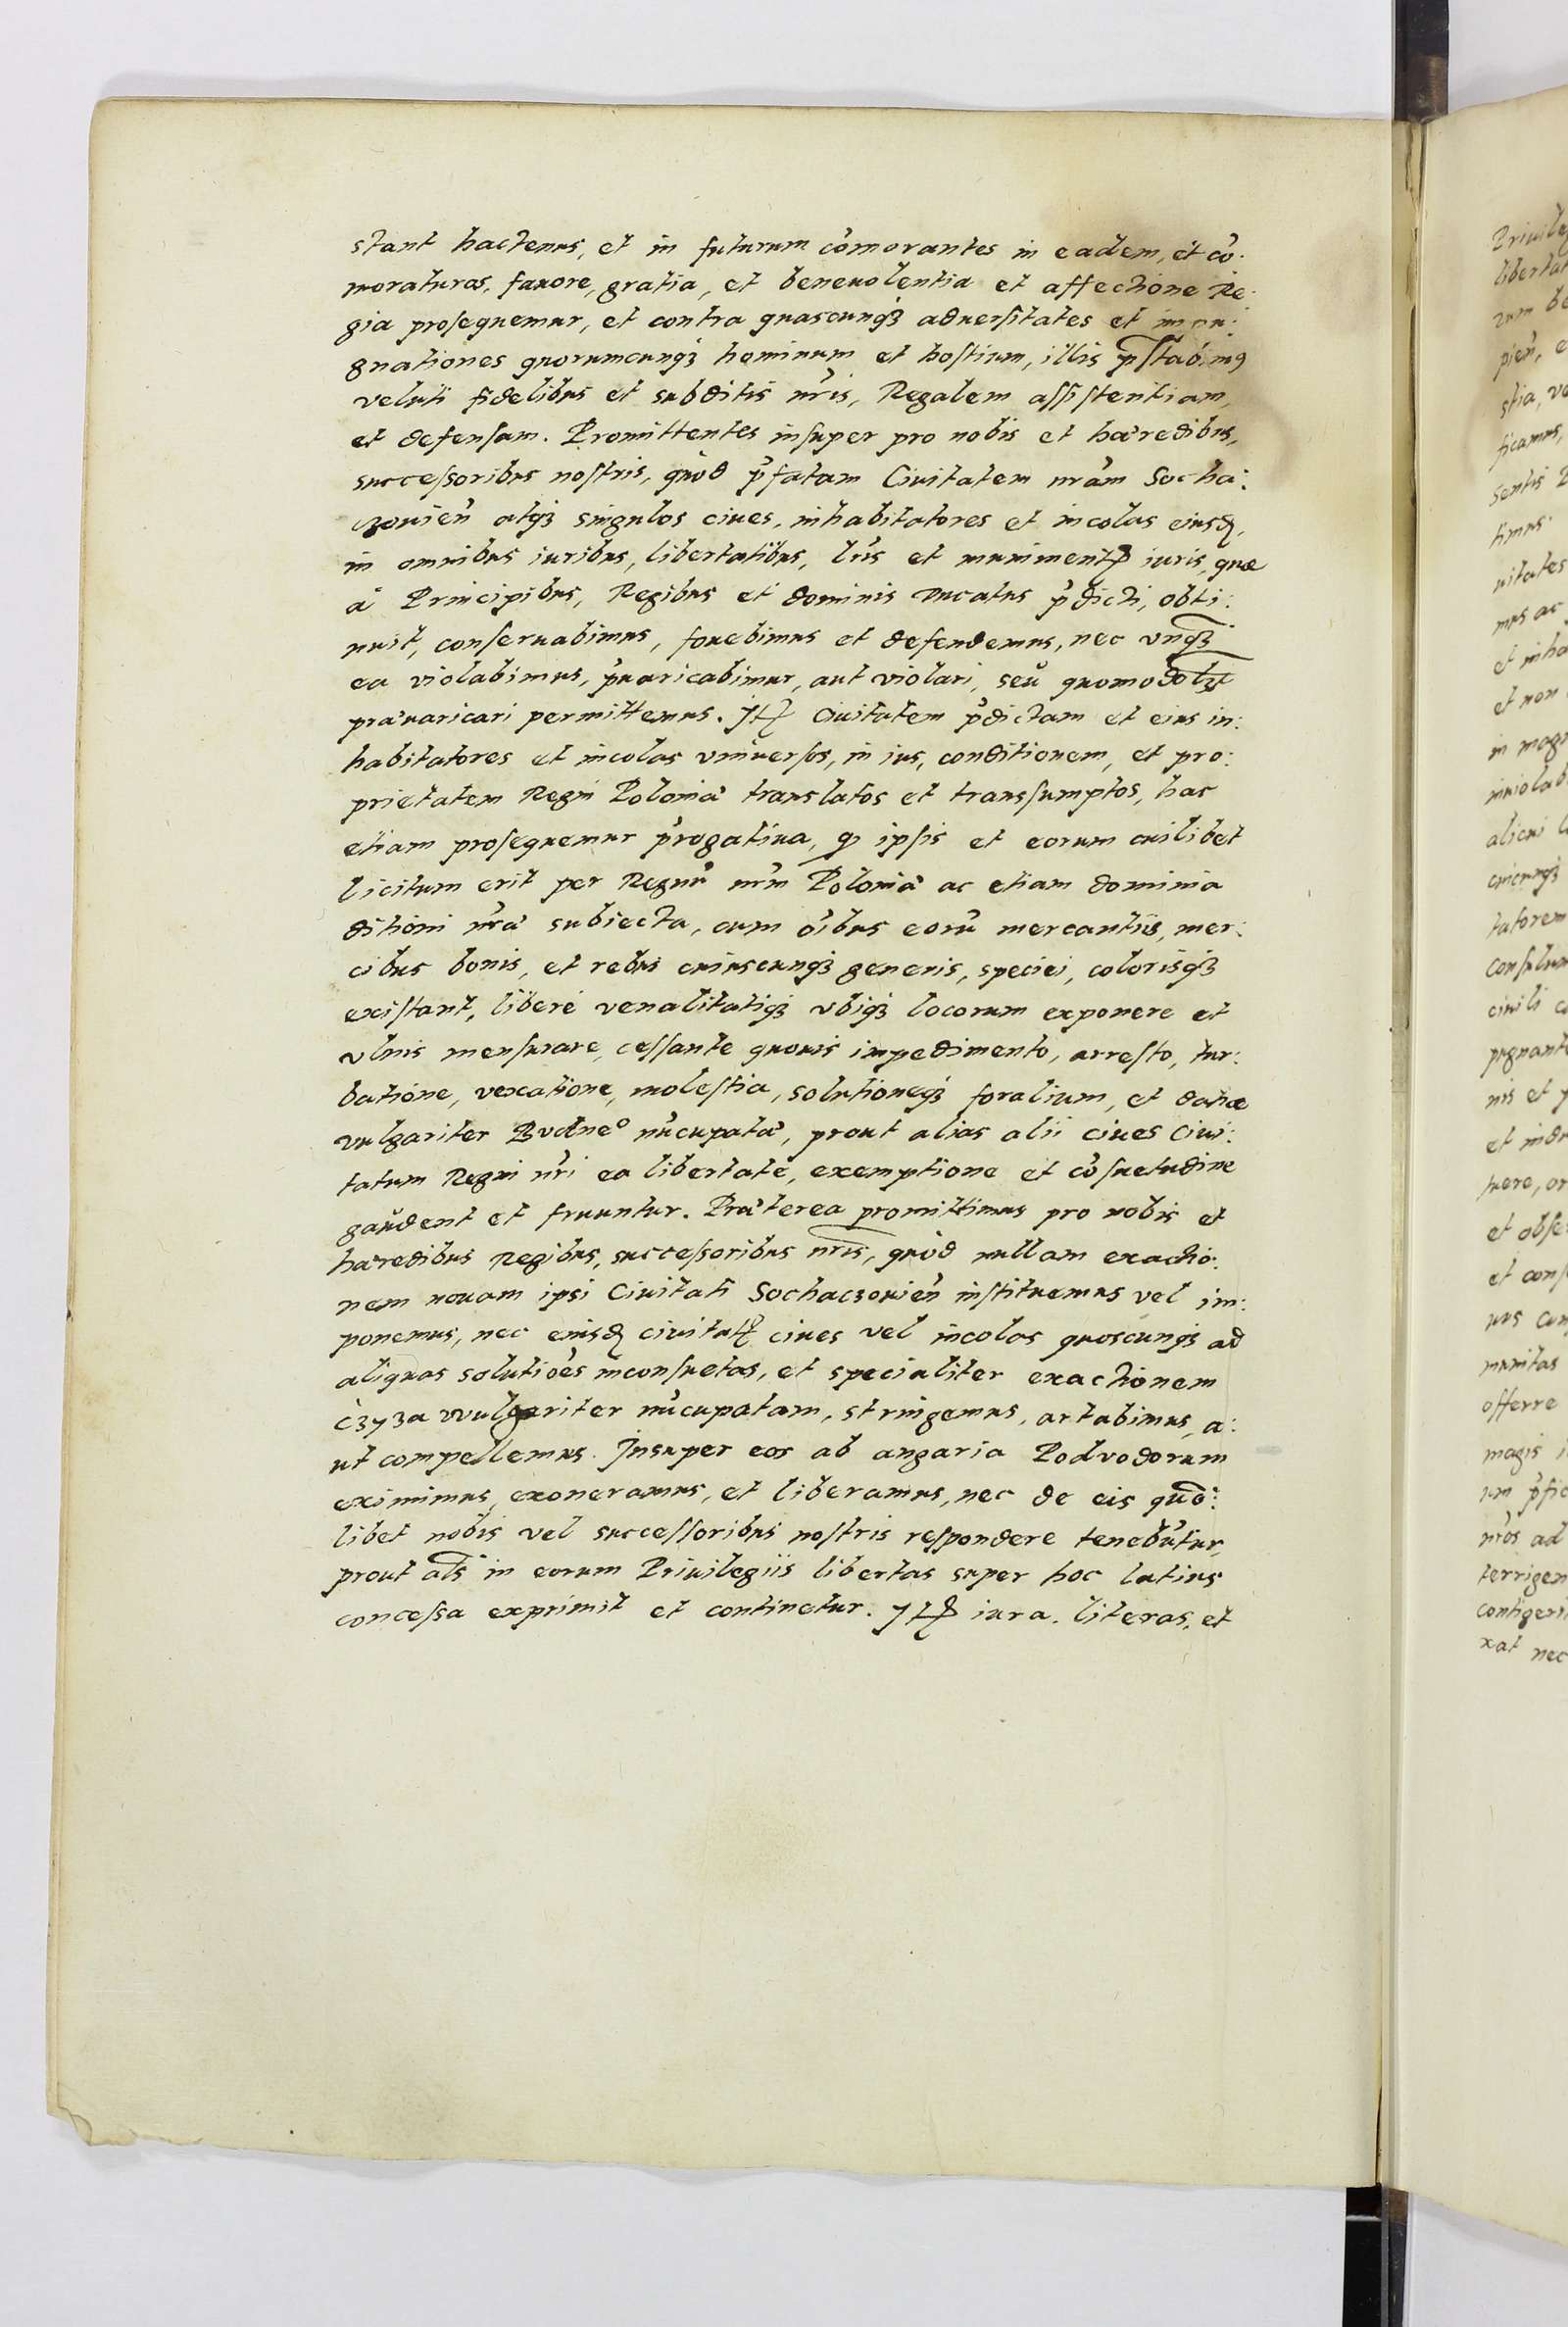 stant hactenus, et in futurum cōmorantes in eadem, et cō:
moraturos, fauore, gratia, et beneuolentia et affectione Re:
gia prosequemur, et contra quascunqꝫ aduersitates et impu:
gnationes quorumcunqꝫ hominum et hostium, illis p̄stabimꝰ
veluti fidelibus et subditis nr̄is, Regalem assistentiam,
et defensam. Promittentes insuper pro nobis et hæredibus,
successoribus nostris, quòd p̄fatam Ciuitatem nr̄am Socha:
czouieñ atqꝫ singulos ciues, inhabitatores et incolas eiusd̄,
in omnibus iuribus, libertatibus, lr̄is et munimentꝭ iuris, quæ
à Principibus, Regibus et dominis Ducatus p̄dicti, obti:
nuit, conseruabimus, fouebimus et defendemus, nec vnqꝫ
ea violabimus, p̄uaricabimur, aut violari, seu quomodolꝫt
præuaricari permittemus. Itꝭ Ciuitatem p̄dictam et eius in:
habitatores et incolas vniuersos, in ius, conditionem, et pro:
prietatem Regni Poloniæ translatos et transsumptos, hac
etiam prosequemur p̄rogatiua, ꝙ ipsis et eorum cuilibet
licitum erit per Regnū nr̄m Poloniæ ac etiam dominia
ditioni nr̄æ subiecta, cum oībus eorū mercantiis, mer:
cibus bonis, et rebus cuiuscunqꝫ generis, speciei, colorisqꝫ
existant, liberè venalitatiqꝫ vbiqꝫ locorum exponere et
vlnis mensurare, cessante quouis impedimento, arresto, tur:
batione, vexatione, molestia, solutioneqꝫ foralium, et datiæ
vulgariter Budneº nūcupatæ, prout alias alii ciues Ciui:
tatum Regni nr̄i ea libertate, exemptione et cōsuetudine
gaudent et fruuntur. Præterea promittimus pro nobis et
hæredibus Regibus, successoribus nr̄is, quòd nullam exactio:
nem nouam ipsi Ciuitati Sochaczouieñ instituemus vel im:
ponemus, nec eiusd̄ ciuitatꝭ ciues vel incolas quoscunqꝫ ad
aliquas solutiōes inconsuetas, et specialiter exactionem
Czyza vulgariter nūcupatam, stringemus, artabimus, a:
ut compellemus. Insuper eos ab angaria Podvodorum
eximimus, exoneramus, et liberamus, nec de eis quō:
libet nobis vel successoribus nostris respondere tenebūtur,
prout al̄s in eorum Priuilegiis libertas super hoc latius
concessa exprimit et continetur. Itꝭ iura, literas, et